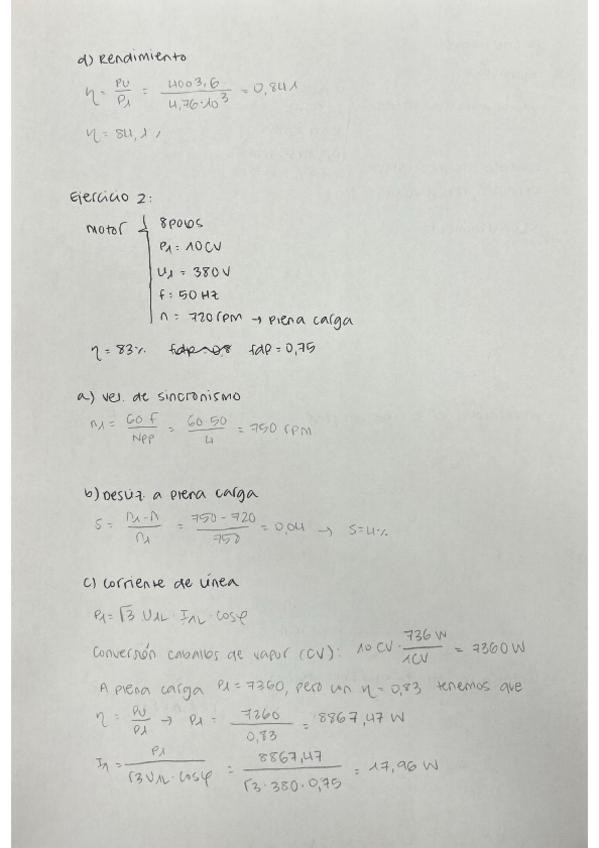 d) Rendimiento
η = PU/P1 = 4003,6/4,76·10³ = 0,841
η = 84,1 %
Ejercicio 2:
motor { 8 polos
P1 = 10 CV
U1 = 380 V
f: 50 Hz
n = 720 rpm → plena carga
η = 83% fdp = 0,75
a) vel. de sincronismo
n1 = 60·f/NPP = 60·50/4 = 750 rpm
b) Desliz. a plena carga
S = n1-n/n1 = 750-720/750 = 0,04 → S=4%
c) corriente de línea
P1 = √3·U1L·I1L·cosφ
Conversión caballos de vapor (CV): 10 CV · 736 W/1CV = 7360 W
A plena carga P1 = 7360, pero un η = 0,83 tenemos que
η = PU/P1 → P1 = 7260/0,83 = 8867,47 W
I1 = P1/√3·U1L·cosφ = 8867,47/√3·380·0,75 = 17,96 W